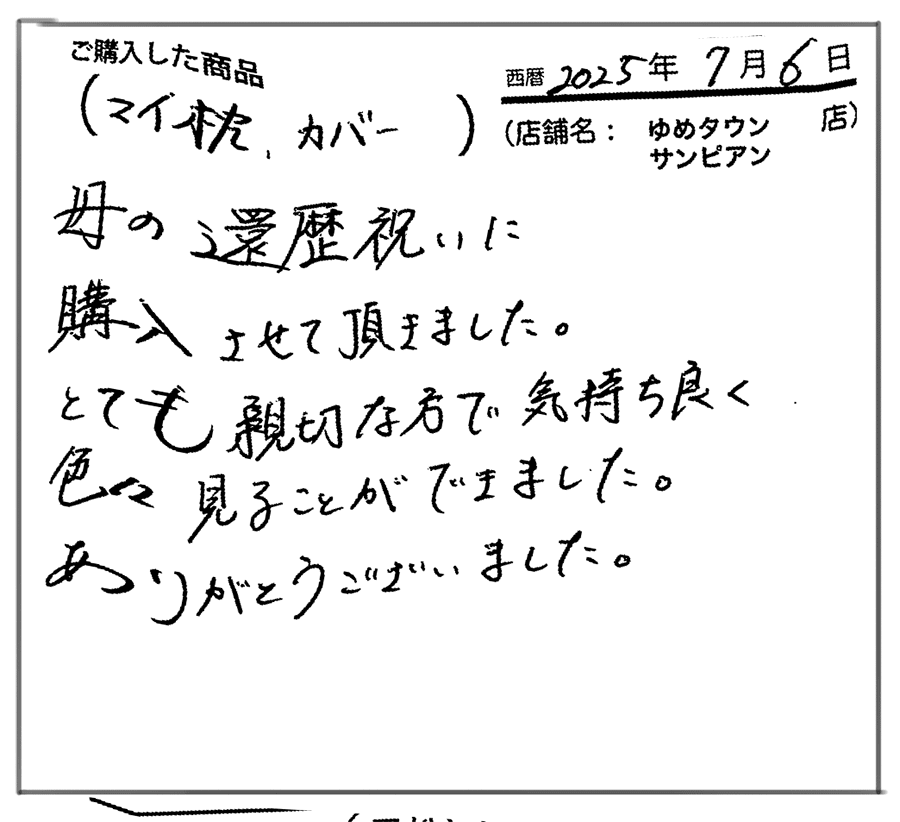 ご購入した商品
西暦 2025年 7月 6日
(マイ枕、カバー)
(店舗名： ゆめタウン 店)
サンピアン
母の還歴祝いに
購入させて頂きました。
とても親切な方で気持ち良く
色々見ることができました。
ありがとうございました。